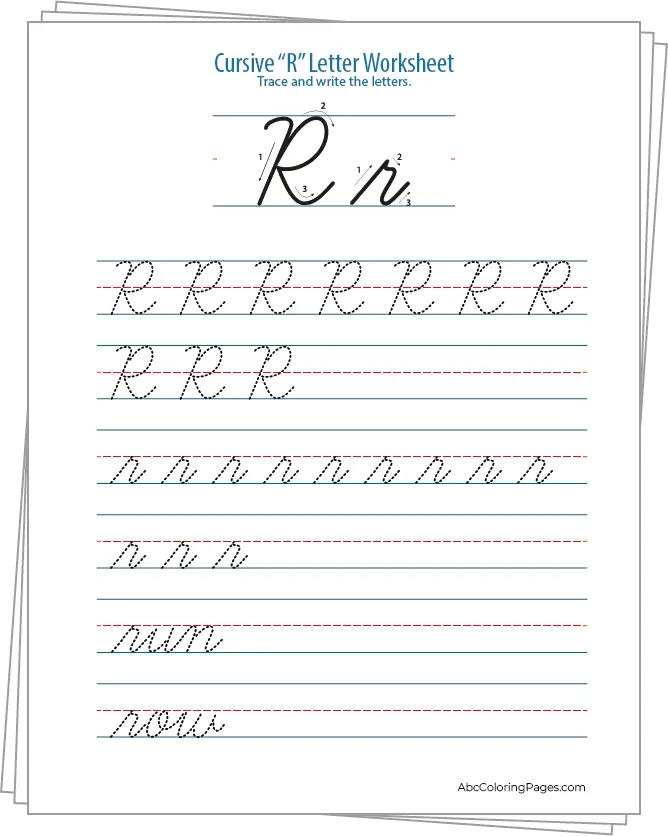 Cursive “R” Letter Worksheet
Trace and write the letters.
R r
1 2 3 1 2 3
R R R R R R R
R R R
r r r r r r r r r
r r r
run
row
AbcColoringPages.com